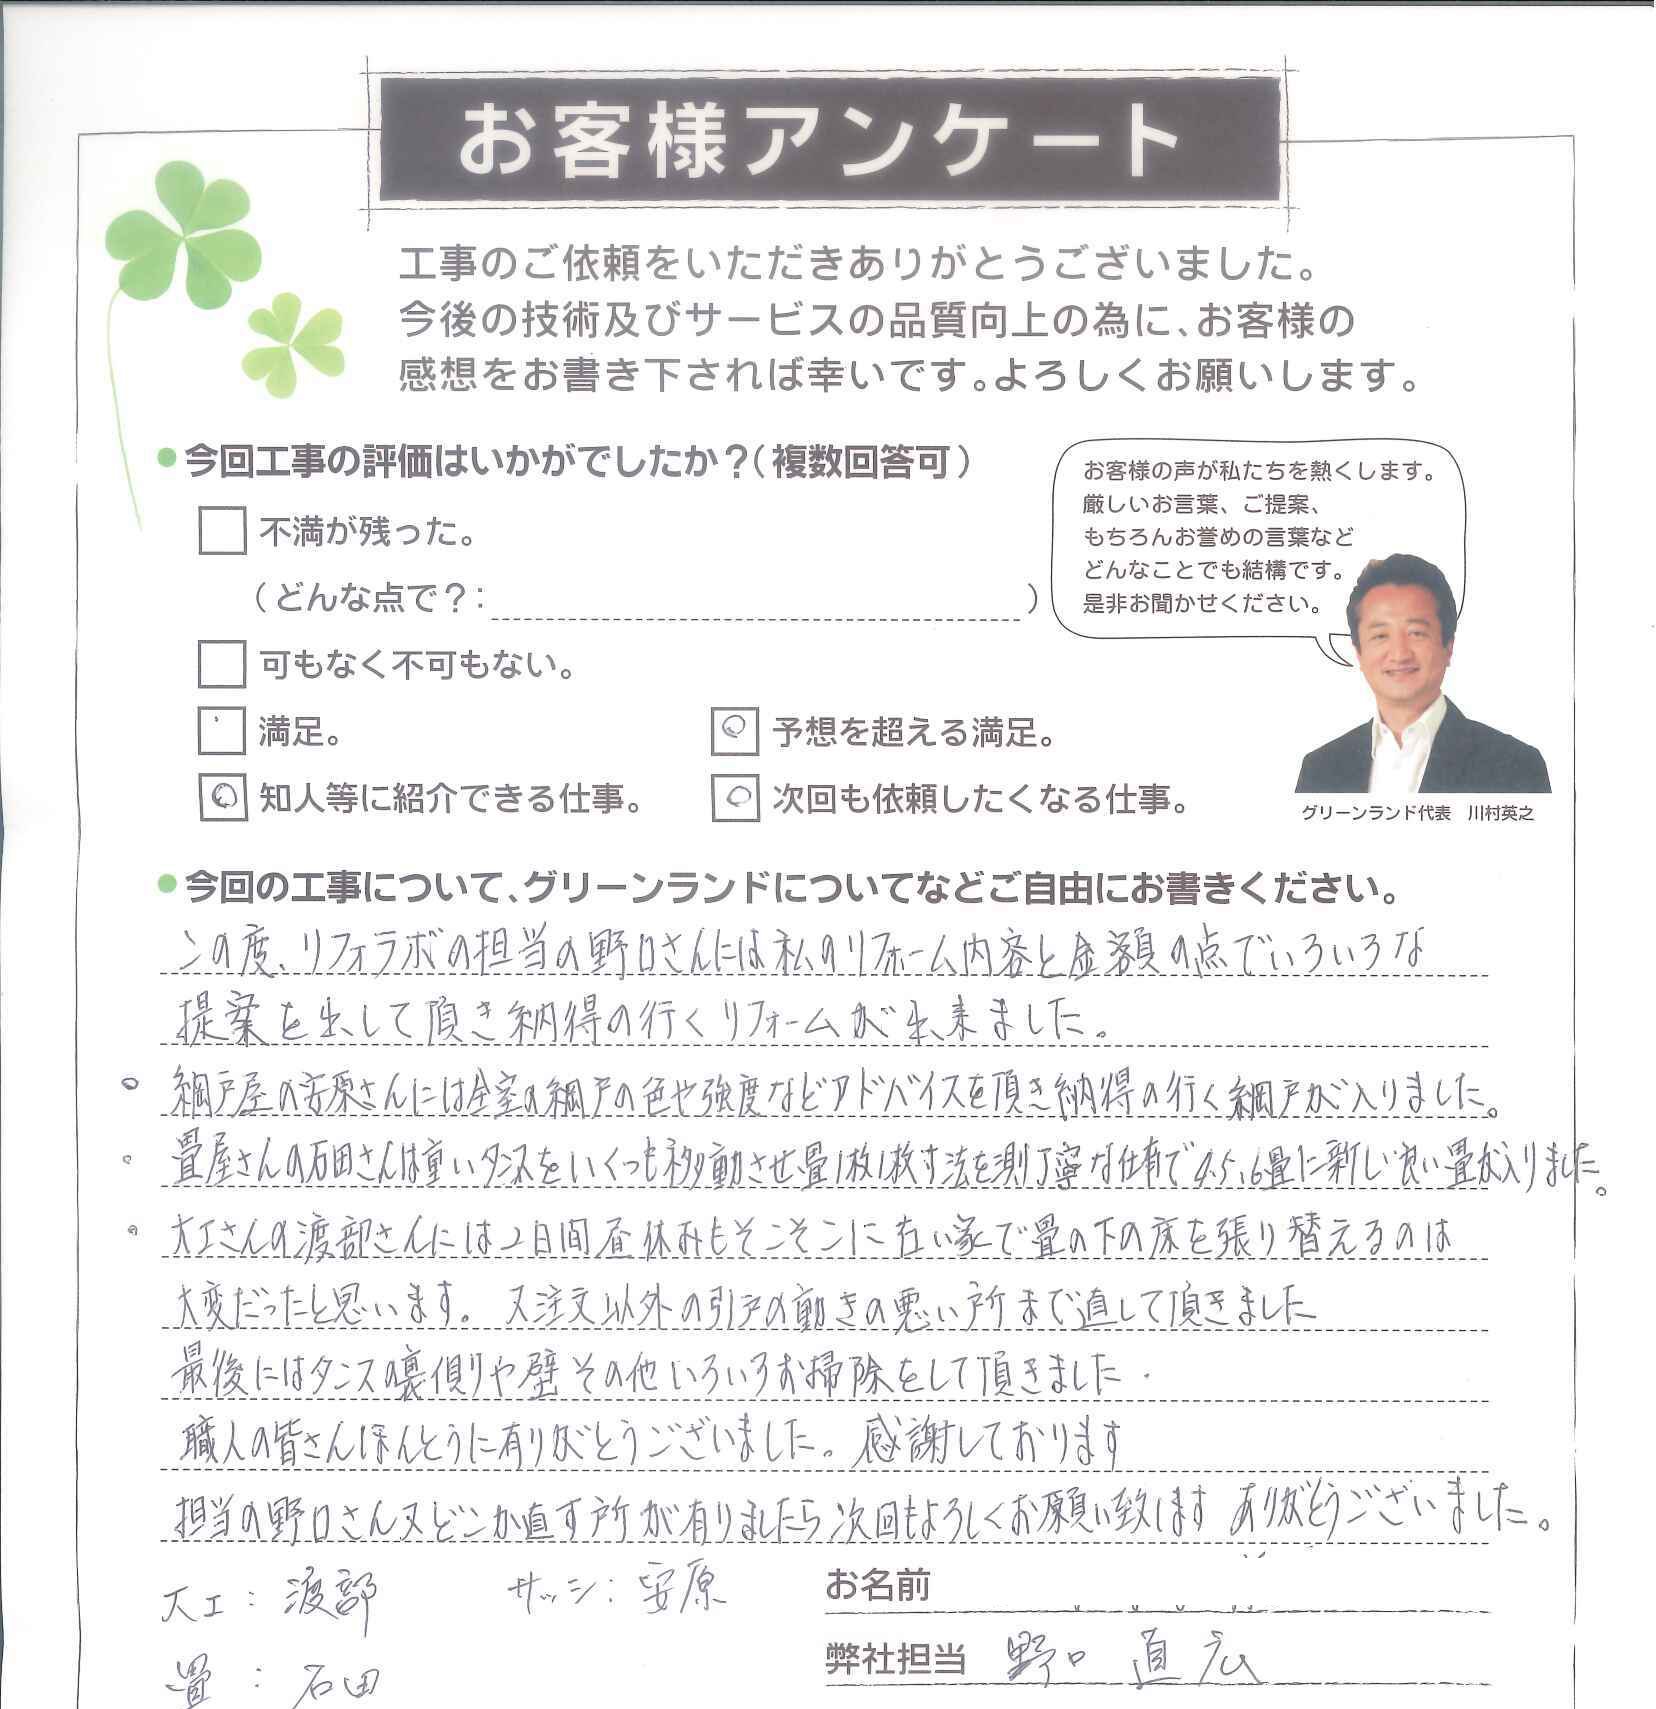 お客様アンケート
工事のご依頼をいただきありがとうございました。
今後の技術及びサービスの品質向上の為に、お客様の
感想をお書き下されば幸いです。よろしくお願いします。
今回工事の評価はいかがでしたか？（複数回答可）
不満が残った。
（どんな点で？： ）
可もなく不可もない。
満足。
予想を超える満足。
知人等に紹介できる仕事。
次回も依頼したくなる仕事。
お客様の声が私たちを熱くします。
厳しいお言葉、ご提案、
もちろんお誉めの言葉など
どんなことでも結構です。
是非お聞かせください。
グリーンランド代表　川村英之
今回の工事について、グリーンランドについてなどご自由にお書きください。
この度、リフォラボの担当の野口さんには私のリフォーム内容と金額の点でいろいろな
提案を出して頂き納得の行くリフォームが出来ました。
網戸屋の安原さんには全室の網戸の色や強度などアドバイスを頂き納得の行く網戸が入りました。
畳屋さんの石田さんは重いタンスをいくつも移動させ畳1枚1枚寸法を測丁寧な仕事で4.5、6畳に新しい良い畳が入りました。
大工さんの渡部さんには2日間昼休みもそこそこに在い家で畳の下の床を張り替えるのは
大変だったと思います。又注文以外の引戸の動きの悪い所まで直して頂きました
最後にはタンスの裏側りや壁その他いろいろお掃除をして頂きました.
職人の皆さんほんとうに有りがとうございました。感謝しております
担当の野口さん又どこか直す所が有りましたら次回もよろしくお願い致します ありがとうございました。
大工：渡部
サッシ：安原
畳：石田
お名前
弊社担当 野口 直広